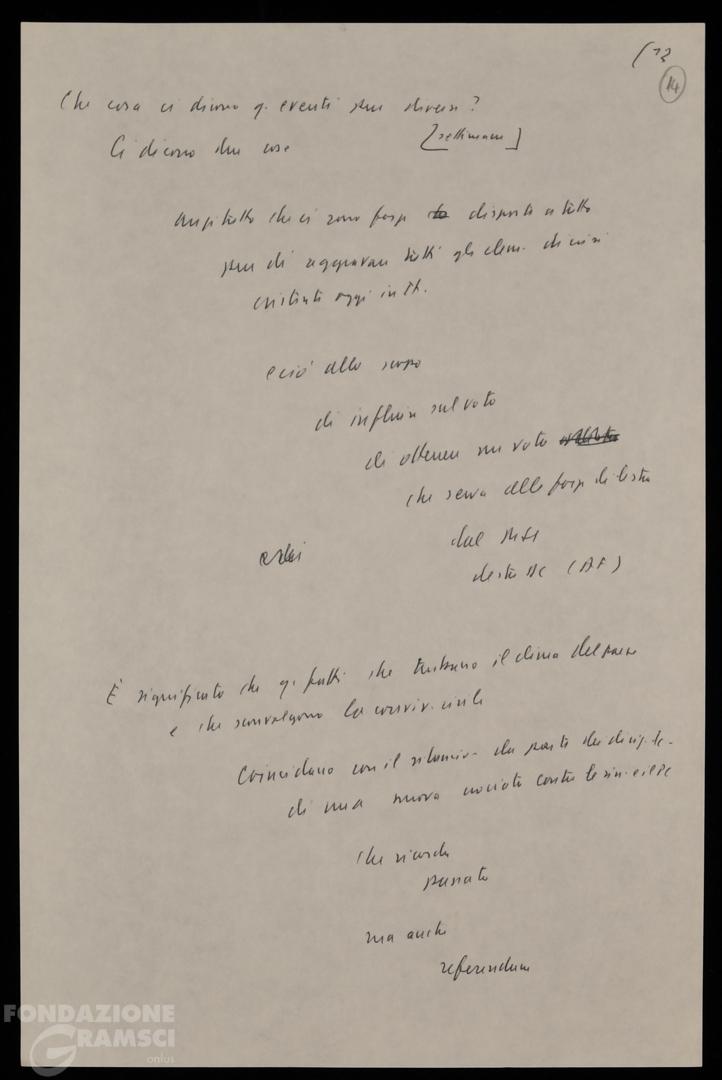 (13
14
Che cosa ci dicono q. eventi pur diversi?
Ci dicono due cose [settimane]
Anzitutto che ci sono forze disposte a tutto
pur di aggravare tutti gli elem. di crisi
esistenti oggi in It.
e ciò allo scopo
di influire sul voto
di ottenere un voto
che serva alle forze di destra
dal MSI
destra DC (AF)
È significato che q. fatti che turbano il clima del paese
e che sconvolgono la conviv. civile
Coincidano con il rilancio da parte
di una nuova crociata contro le sin. e il PC
che ricorda
passato
ma anche
referendum
FONDAZIONE
GRAMSCI
onlus